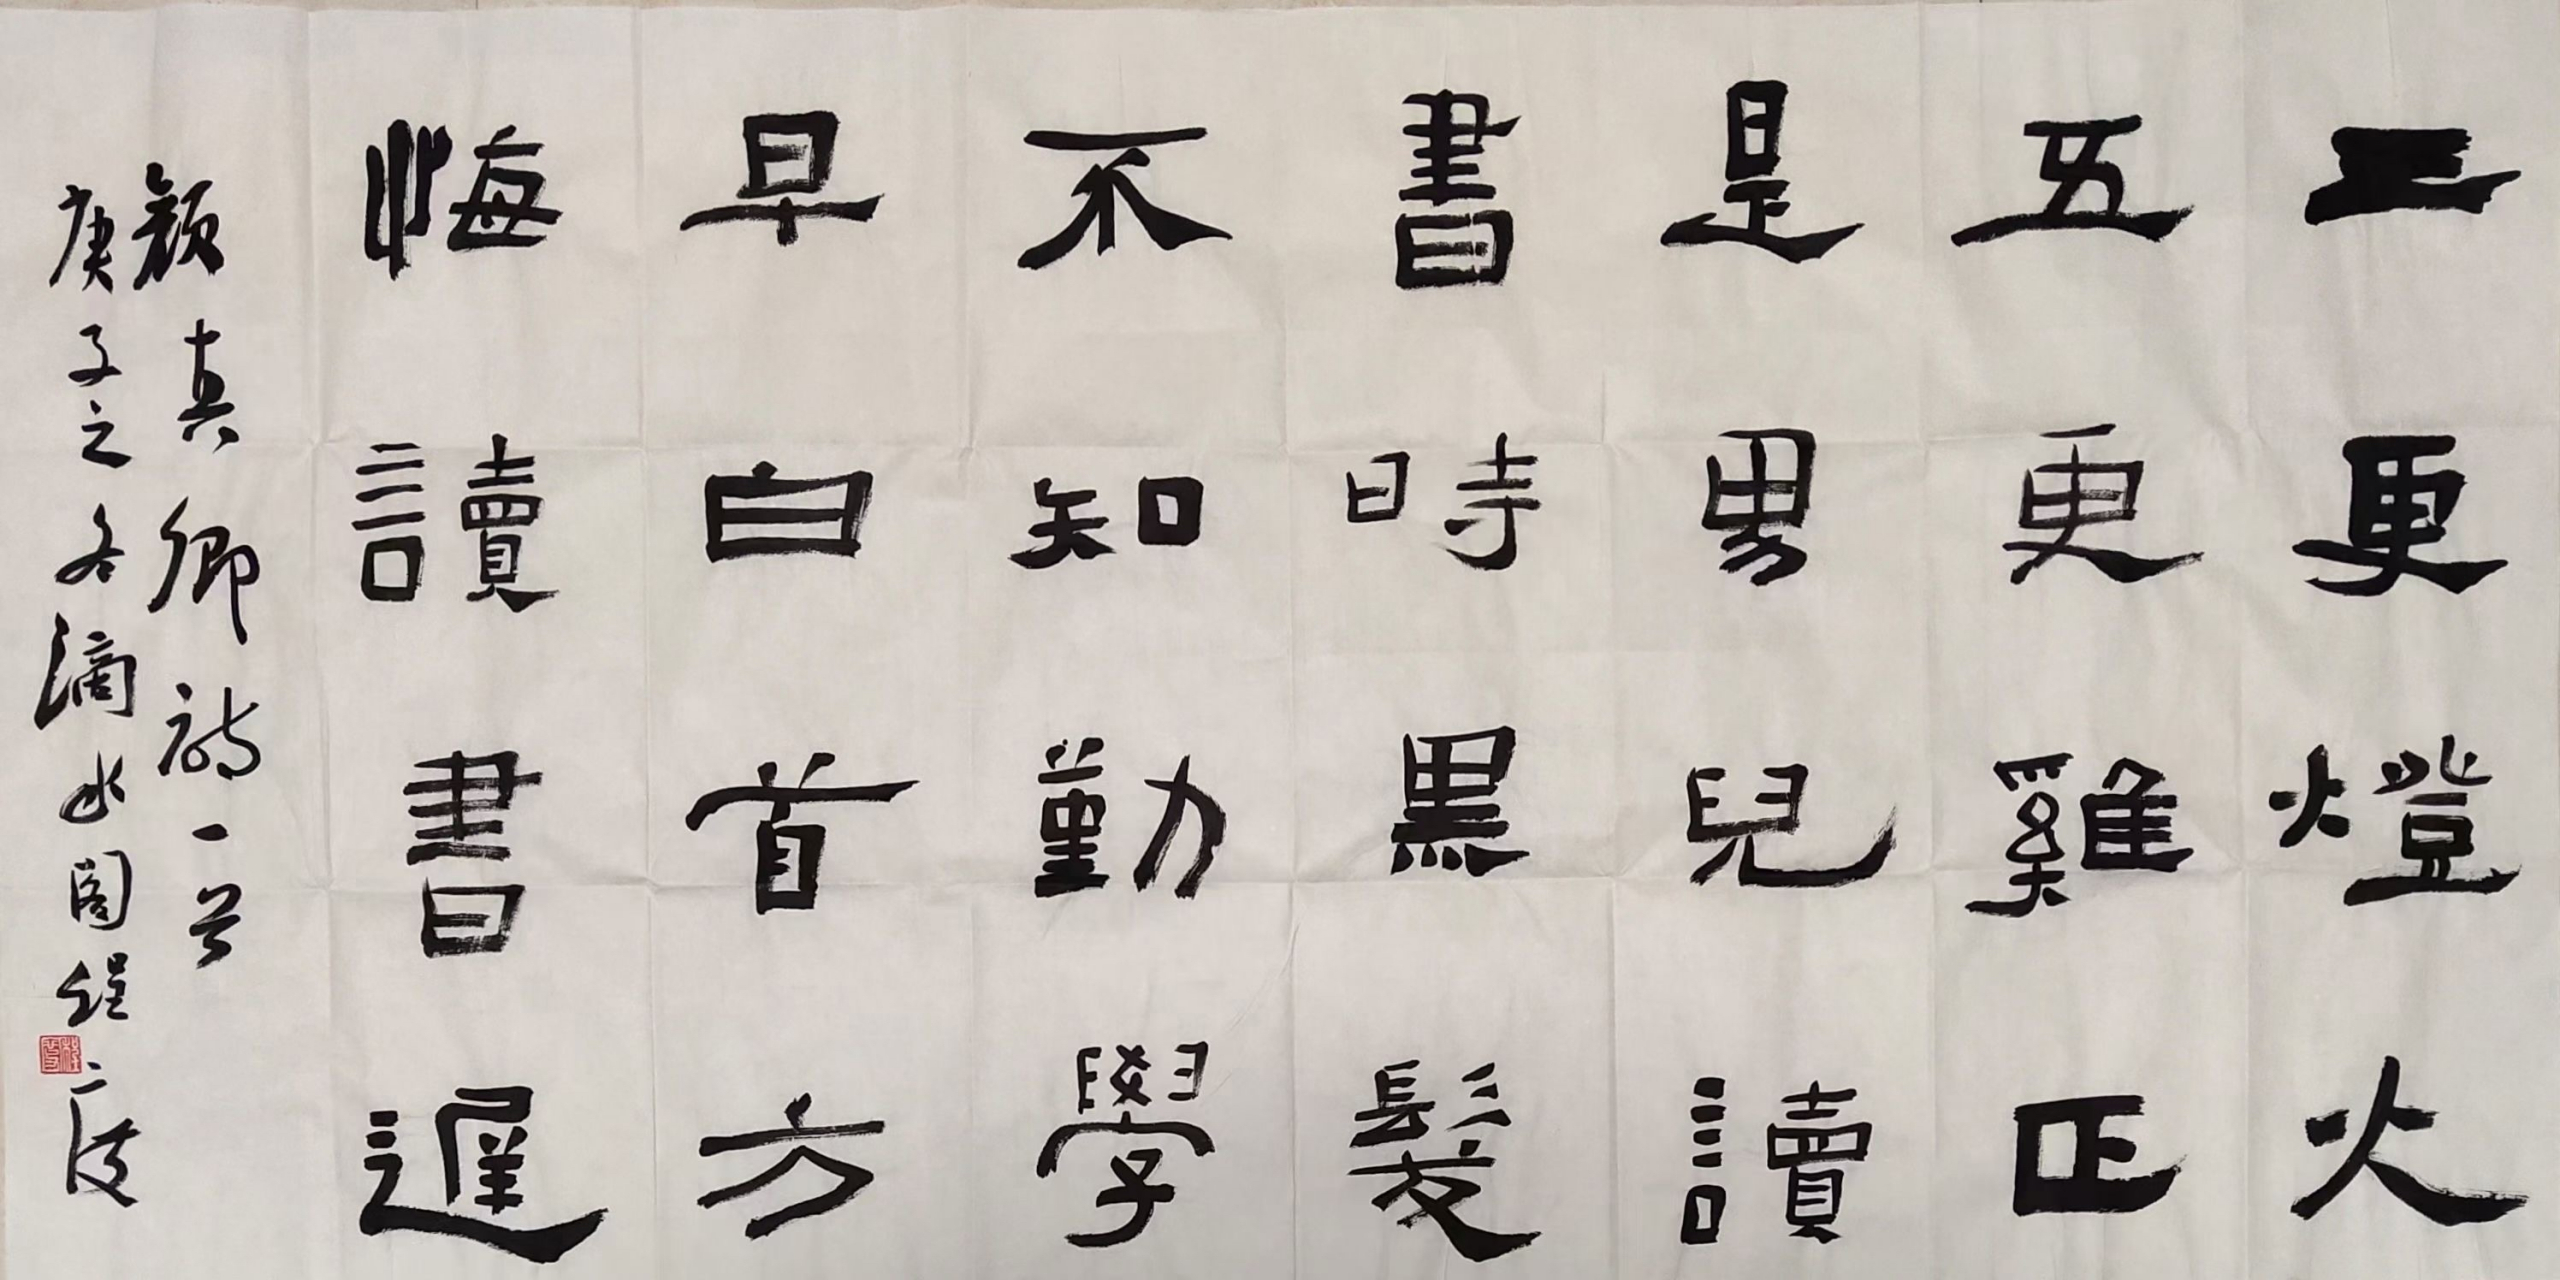 三更燈火
五更雞正
是男兒讀
書時黑髮
不知勤學
早白首方
悔讀書遲
顏真卿詩一首
庚子之冬滴水閣程